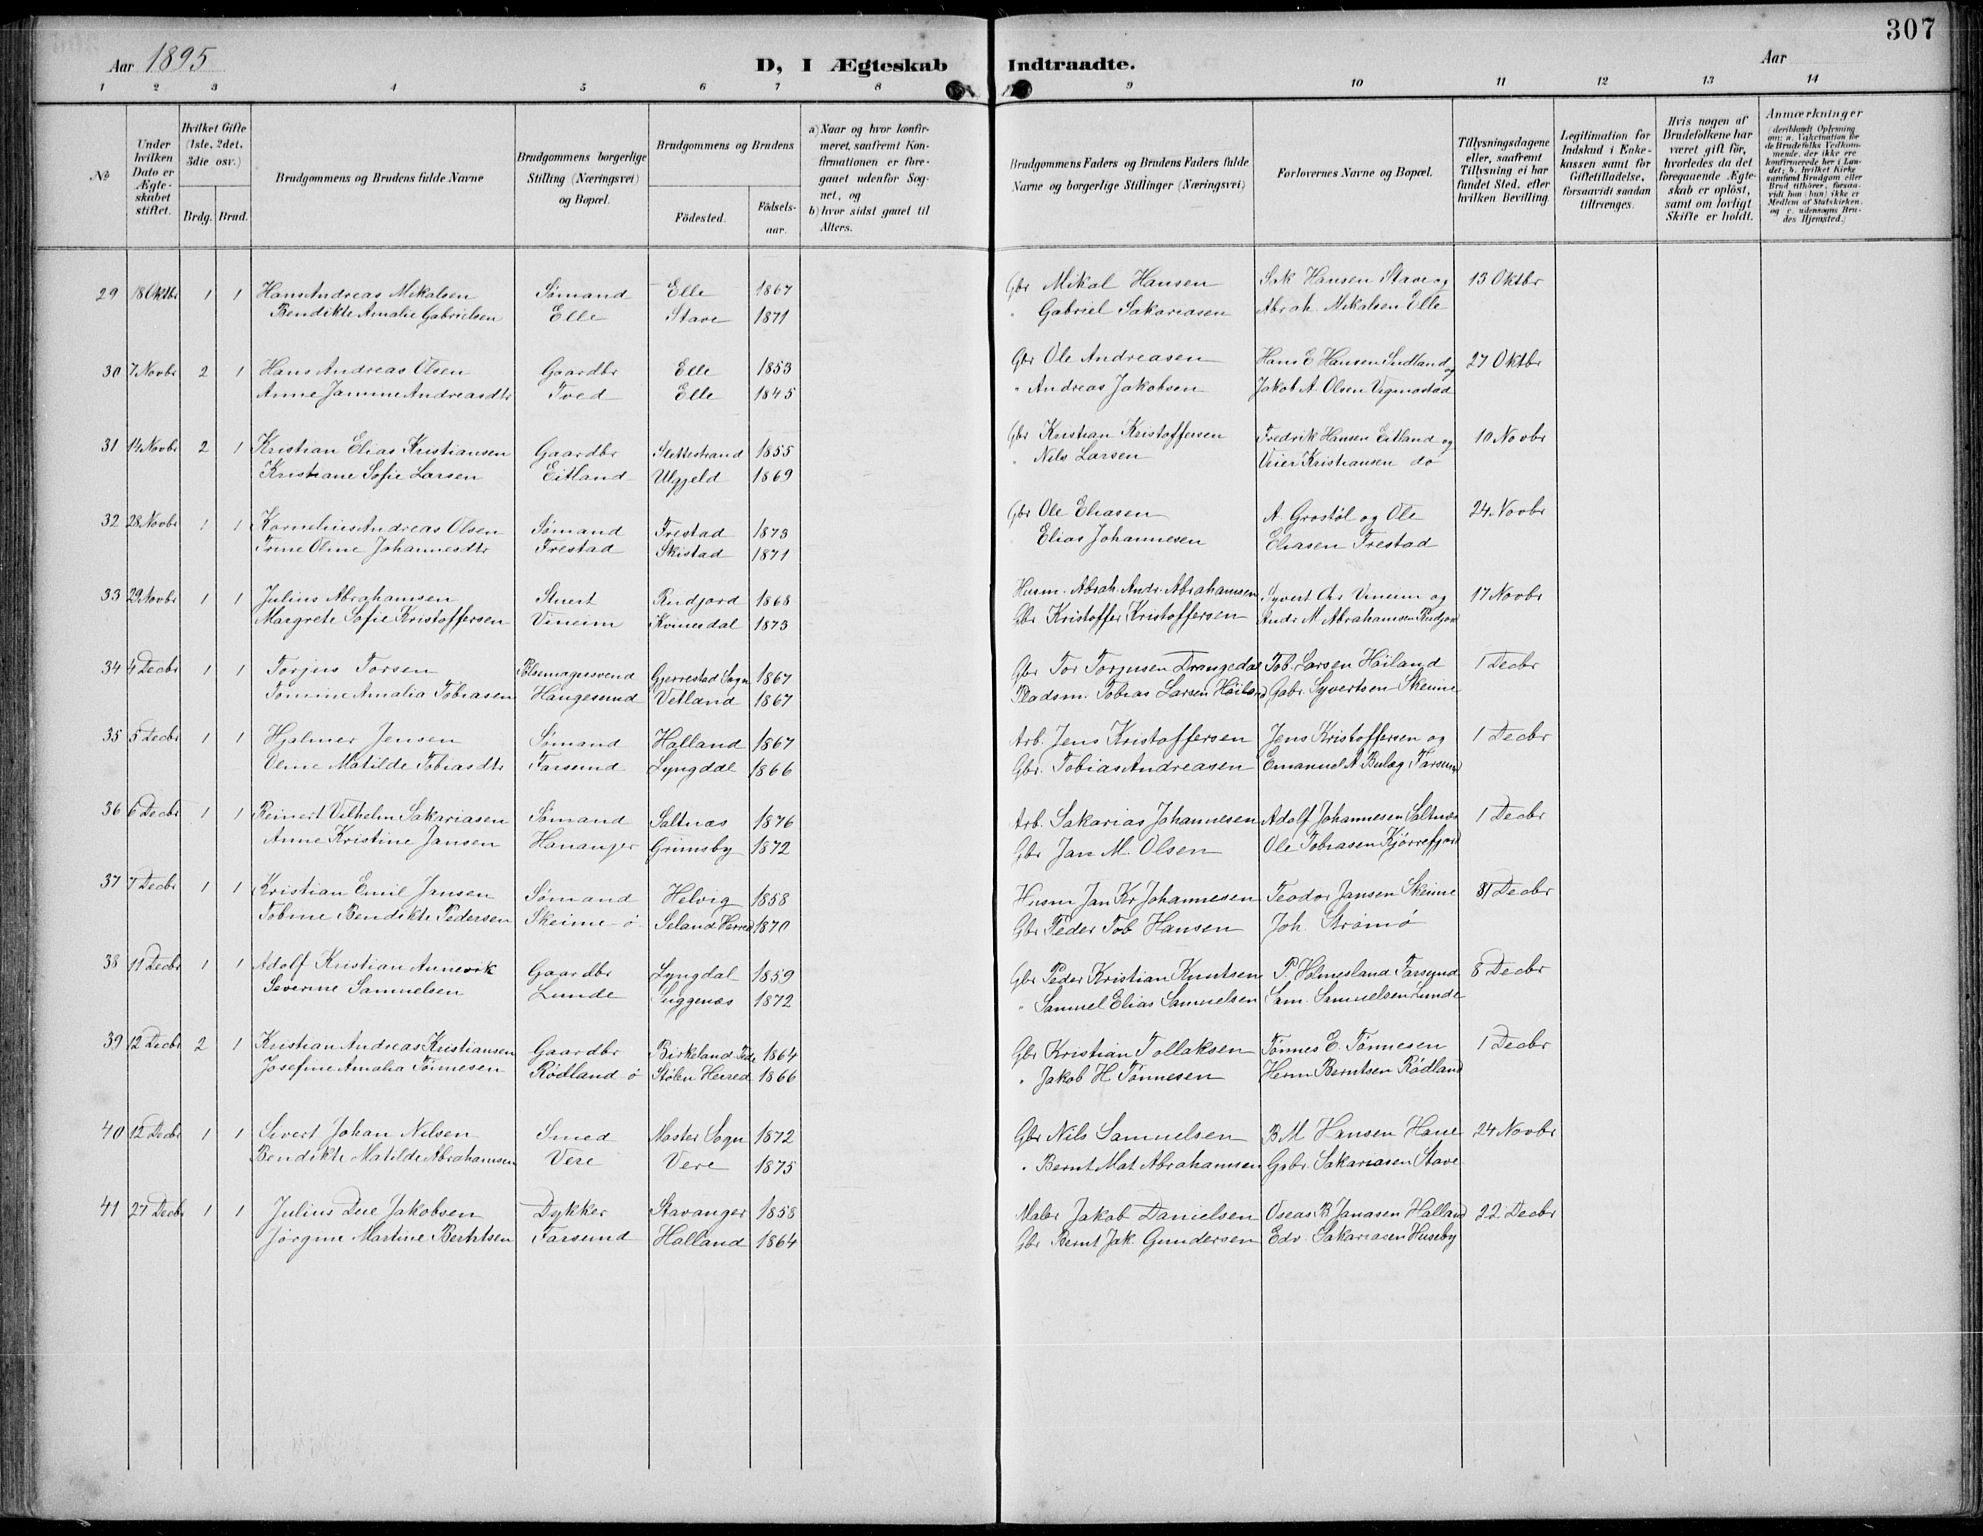 307
Aar 1895
D, I Ægteskab Indtraadte.
Aar
1 2 3 4 5 6 7 8 9 10 11 12 13 14
№
Under hvilken Dato er Ægteskabet stiftet.
Hvilket Gifte (1ste, 2det, 3die osv.)
Brdg. Brud.
Brudgommens og Brudens fulde Navne
Brudgommens borgerlige Stilling (Næringsvei) og Bopæl.
Brudgommens og Brudens
Födested.
Födsels-aar.
a) Naar og hvor konfirmeret, saafremt Konfirmationen er foregaaet udenfor Sognet, og
b) hvor sidst gaaet til Alters.
Brudgommens Faders og Brudens Faders fulde Navne og borgerlige Stillinger (Næringsvei)
Forlovernes Navne og Bopæl.
Tillysningsdagene eller, saafremt Tillysning ei har fundet Sted, efter hvilken Bevilling.
Legitimation for Indskud i Enkekassen samt for Giftetilladelse, forsaavidt saadan tiltrænges.
Hvis nogen af Brudefolkene har været gift før, hvorledes da det foregaaende Ægteskab er oplöst, samt om lovligt Skifte er holdt.
Anmærkninger
29 18 Oktbr 1 1 Hans Andreas Mikalsen Sømand Elle 1867 Gbr Mikal Hansen Sak Hansen Stave og 13 Oktbr
Bendikte Amalie Gabrielsen Elle Stave 1871 " Gabriel Sakariasen Abrah. Mikalsen Elle
30 7 Novbr 2 1 Hans Andreas Olsen Gaardbr Elle 1853 Gbr Ole Andreasen Hans E Hansen Indland og 27 Oktbr
Anne Jamine Andreasdtr Tved Elle 1845 " Andreas Jakobsen Jakob A. Olsen Vigmostad
31 14 Novbr 2 1 Kristian Elias Kristiansen Gaardbr Slettestrand 1855 Gbr Kristian Kristoffersen Fredrik Hansen Eitland og 10 Novbr
Kristiane Sofie Larsen Eitland Ulgjeld 1869 " Nils Larsen Veier Kristiansen do
32 28 Novbr 1 1 Kornelius Andreas Olsen Sømand Frestad 1873 Gbr Ole Eliasen A. Grostøl og Ole 24 Novbr
Trine Oline Johannesdtr Frestad Skistad 1871 Elias Johannesen Eliasen Frestad
33 29 Novbr 1 1 Julius Abrahamsen Stuert Rudjord 1868 Husm. Abrah. Andr. Abrahamsen Syvert Chr Vineim og 17 Novbr
Margrete Sofie Kristoffersen Vineim Kvinesdal 1873 Gbr Kristoffer Kristoffersen Andr M Abrahamsen Rudjord
34 4 Decbr 1 1 Torjus Torsen Pølsemagersvend Gjerrestad Sogn 1867 Gbr Tor Torjusen Drangedal Tob. Larsen Höiland 1 Decbr
Tomine Amalia Tobiasen Haugesund Vetland 1867 Pladsm. Tobias Larsen Höiland Gabr. Syvertsen Skeime
35 5 Decbr 1 1 Hjalmer Jensen Sømand Halland 1867 Arb. Jens Kristoffersen Jens Kristoffersen og 1 Decbr
Oline Matilde Tobiasdtr Farsund Lyngdal 1866 Gbr. Tobias Andreasen Emanuel A Bulag Farsund
36 6 Decbr 1 1 Reinert Vilhelm Sakariasen Sømand Saltnæs 1876 Arb. Sakarias Johannesen Adolf Johannesen Saltnæs 1 Decbr
Anne Kristine Jansen Hananger Grimsby 1872 Gbr Jan M. Olsen Ole Tobiasen Kjørrefjord
37 7 Decbr 1 1 Kristian Emil Jansen Sømand Helvig 1858 Husm Jan Kr Johannesen Teodor Jansen Skeime 1 Decbr
Tobine Bendikte Pedersen Skeime ø Seland Herred 1870 Gbr Peder Tob Hansen Joh. Strømø
38 11 Decbr 1 1 Adolf Kristian Annevik Gaardbr Lyngdal 1859 Gbr Peder Kristian Knutsen P. Holmesland Farsund 8 Decbr
Severine Samuelsen Lunde Siggenæs 1872 " Samuel Elias Samuelsen Sam. Samuelsen Lunde
39 12 Decbr 2 1 Kristian Andreas Kristiansen Gaardbr Birkeland Fede 1864 Gbr Kristian Tollaksen Tønnes E. Tønnesen 1 Decbr
Josefine Amalia Tönnesen Rødland ø Stølen Herred 1866 " Jakob H Tønnesen Herm Berntsen Rødland
40 12 Decbr 1 1 Sivert Johan Nilsen Smed Moster Sogn 1872 Gbr Nils Samuelsen B M Hansen Hane 24 Novbr
Bendikte Matilde Abrahamsen Vere Vere 1875 " Bernt Mat Abrahamsen Gabr Sakariasen Stave
41 27 Decbr 1 1 Julius Due Jakobsen Dykker Stavanger 1858 Maler Jakob Danielsen Oseas B Janasen Halland 22 Decbr
Jørgine Martine Berntsen Farsund Halland 1864 Gbr Bernt Jak. Gundersen Edv. Sakariasen Huseby